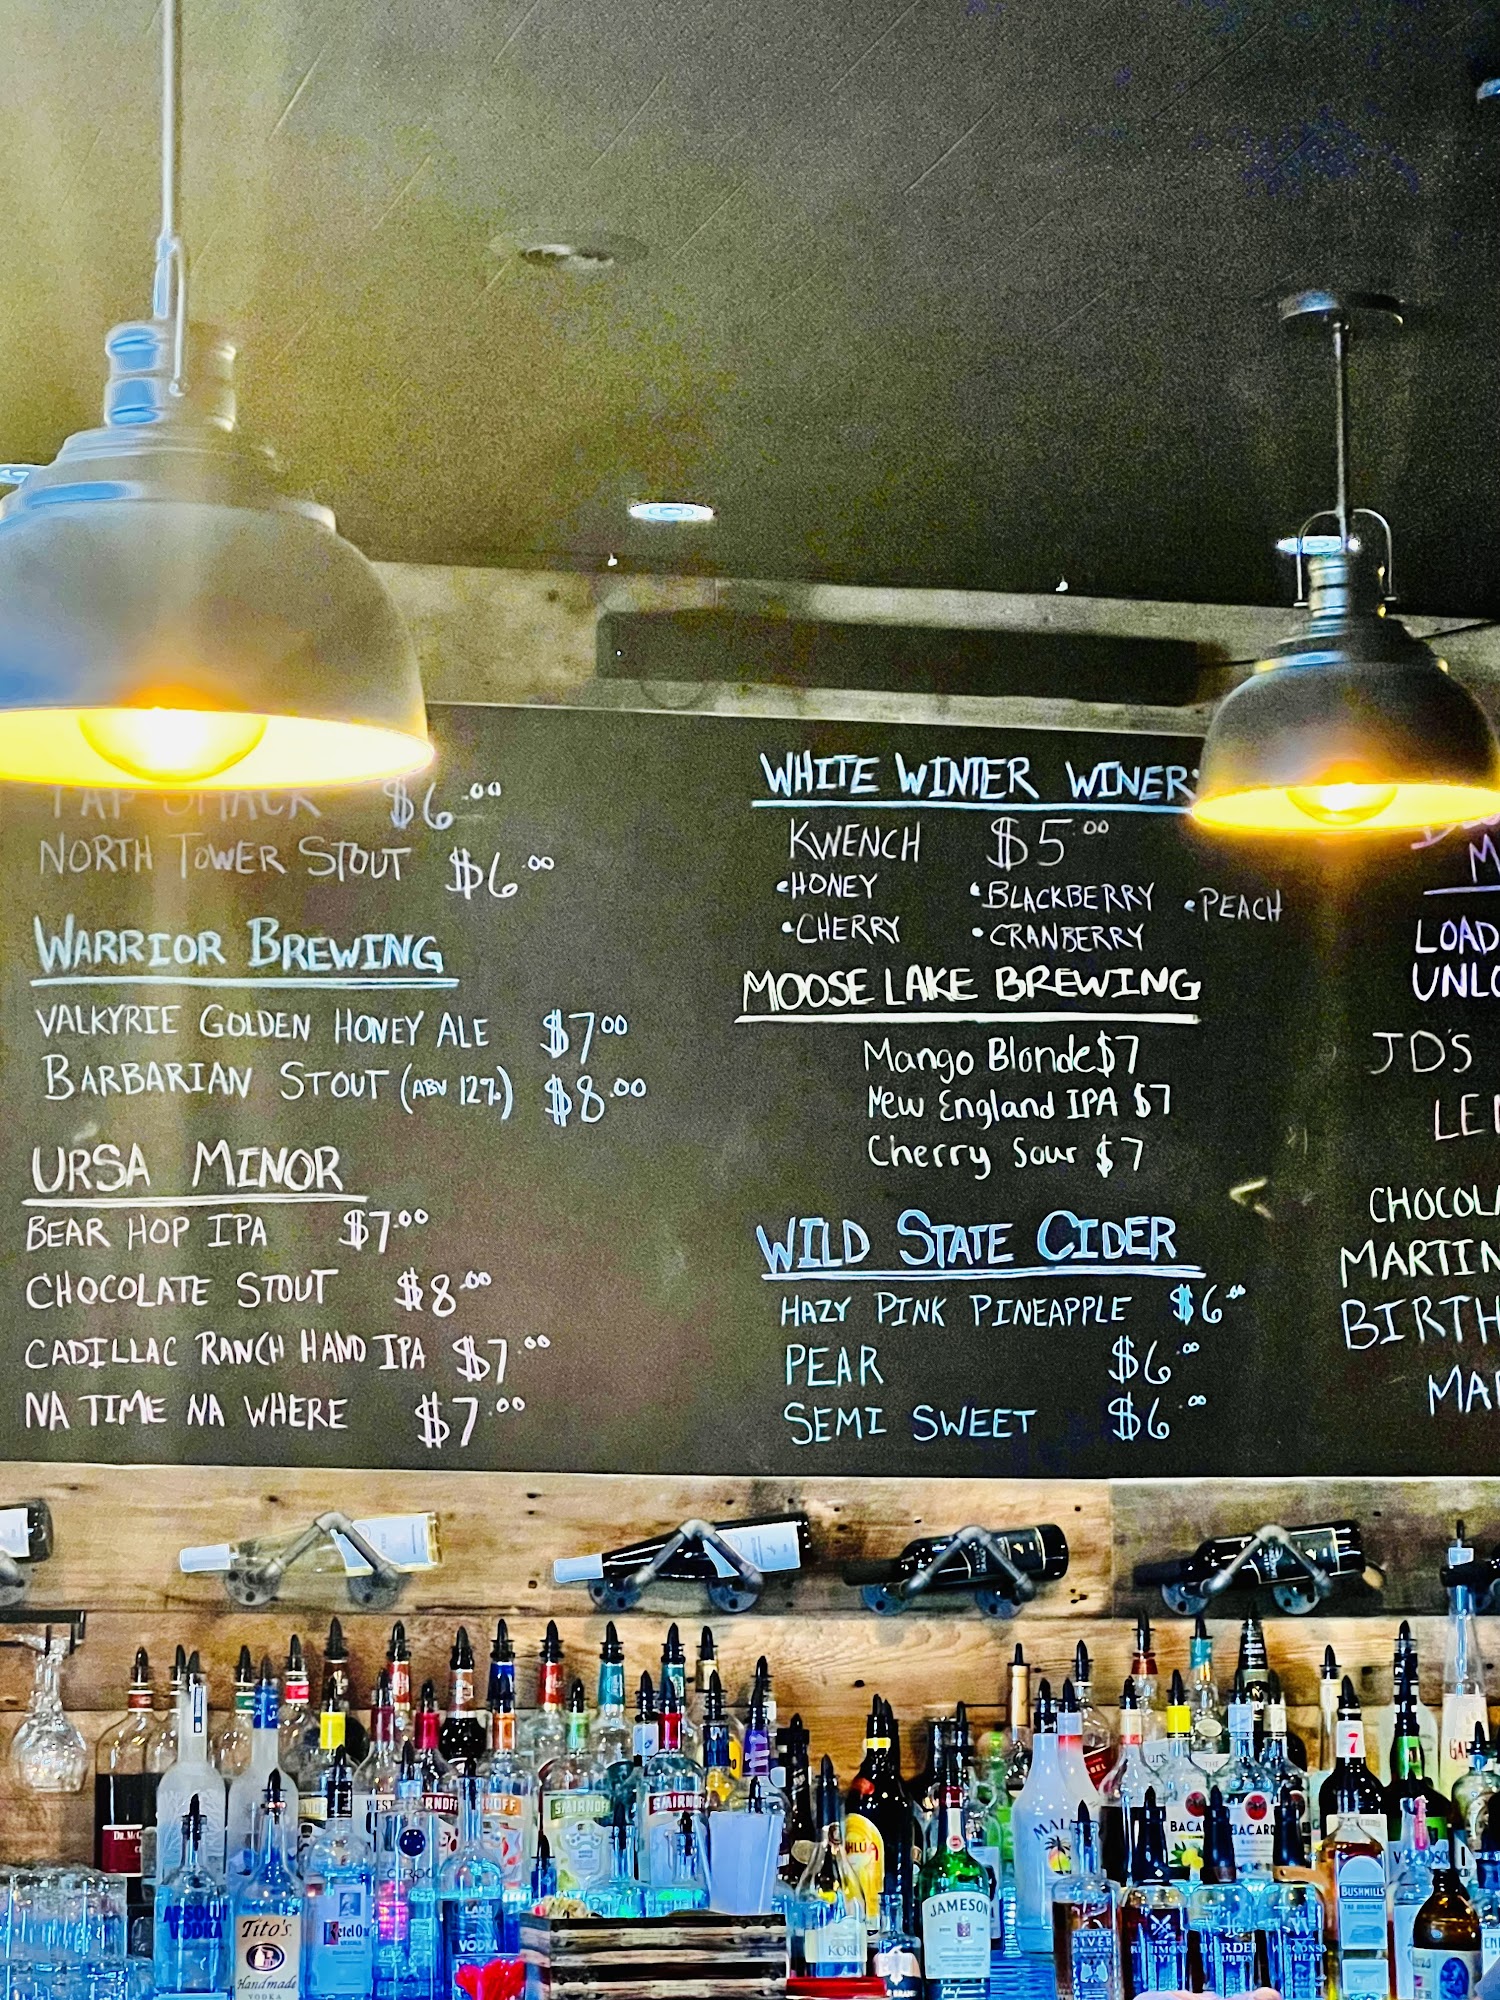 SMACK $6.00
NORTH TOWER STOUT $6.00
WARRIOR BREWING
VALKYRIE GOLDEN HONEY ALE $7.00
BARBARIAN STOUT (ABV 12%) $8.00
URSA MINOR
BEAR HOP IPA $7.00
CHOCOLATE STOUT $8.00
CADILLAC RANCH HAND IPA $7.00
NA TIME NA WHERE $7.00
WHITE WINTER WINER
KWENCH $5.00
•HONEY •BLACKBERRY •PEACH
•CHERRY •CRANBERRY
MOOSE LAKE BREWING
Mango Blonde $7
New England IPA $7
Cherry Sour $7
WILD STATE CIDER
HAZY PINK PINEAPPLE $6.00
PEAR $6.00
SEMI SWEET $6.00
M
LOAD
UNLO
JD'S
LE
CHOCOLA
MARTIN
BIRTH
MA
SMIRNOFF
SMIRNOFF
CIROC
ABSOLUT
VODKA
Tito's
Handmade
VODKA
Ketel One
LAKE
VODKA
JAMESON
TEMPERANCE
RIVER
BORDER
BOURBON
WISCONSIN
WHEAT
BACARDI
BACARDI
7
BUSHMILLS